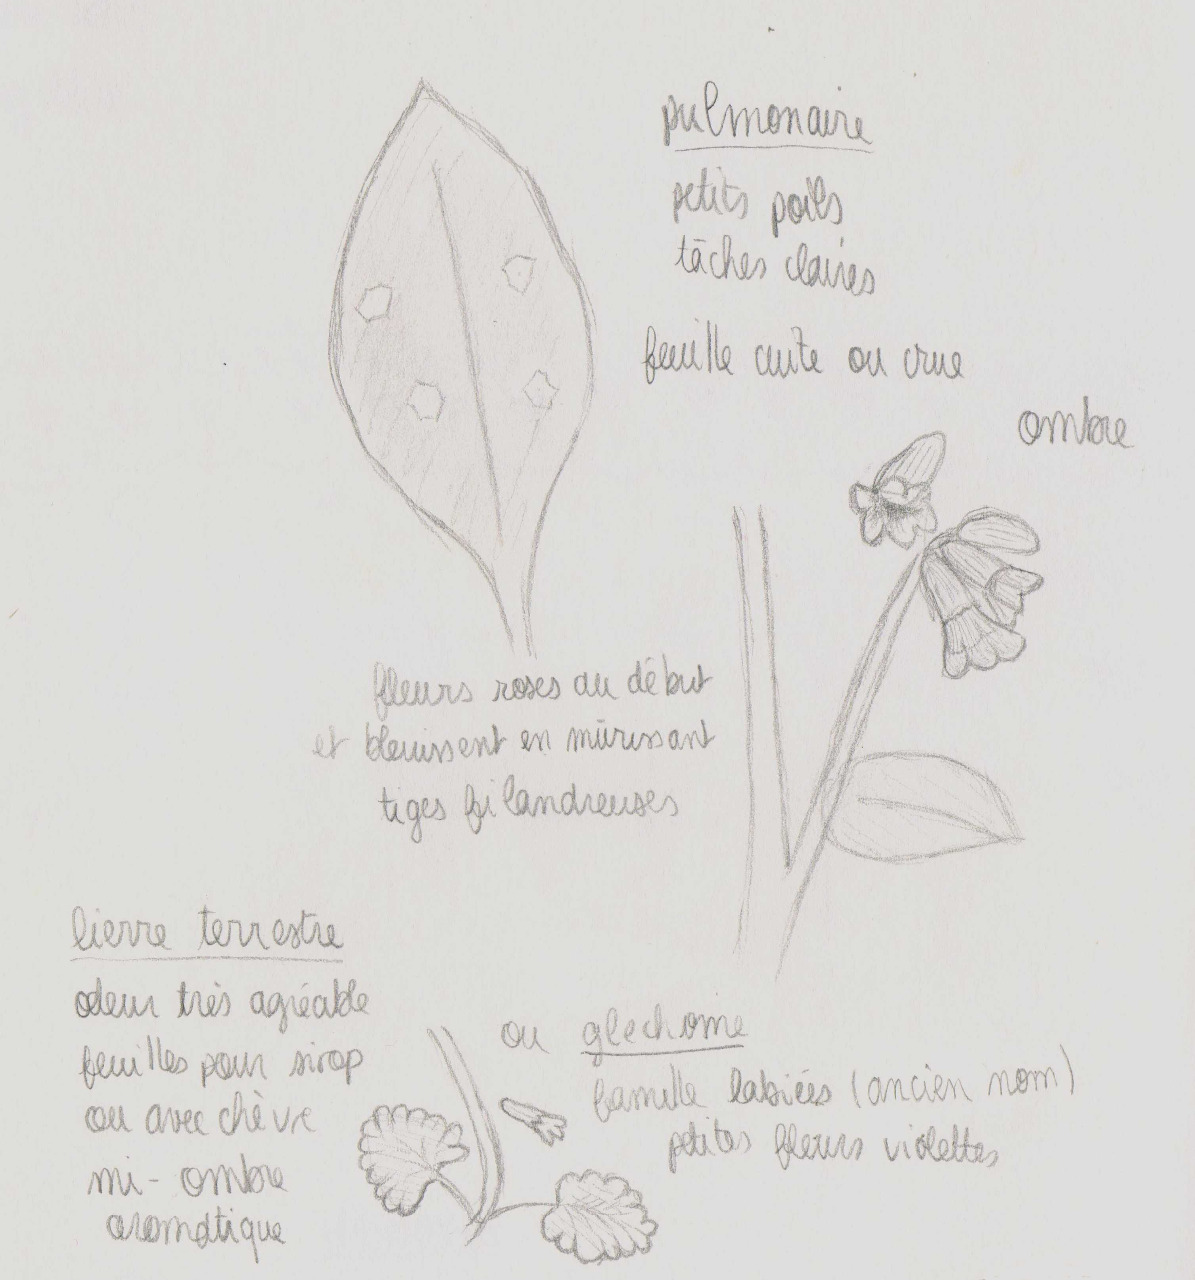 pulmonaire
petits poils
tâches claires
feuille cuite ou crue
ombre
fleurs roses au début
et bleuissent en mûrissant
tiges filandreuses
lierre terrestre
odeur très agréable
feuilles pour sirop
ou avec chèvre
mi-ombre
aromatique
ou glechome
famille labiées (ancien nom)
petites fleurs violettes